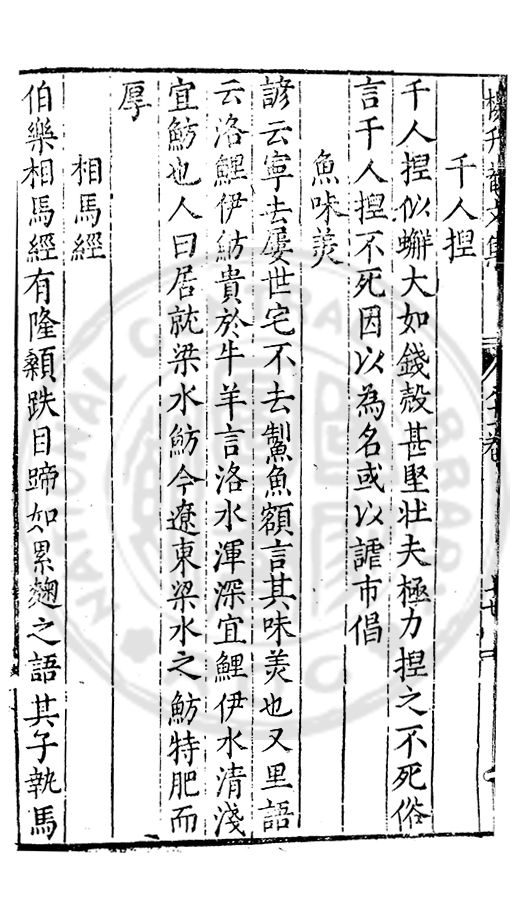 千人揑
千人揑似蠏大如錢殻甚堅壯夫極力揑之不死俗
言千人揑不死因以為名或以謔市倡
魚味羙
諺云寜去屡世宅不去鮆魚額言其味羙也又里語
云洛鯉伊魴貴於牛羊言洛水渾深宜鯉伊水清淺
宜魴也人曰居就梁水魴今遼東梁水之魴特肥而
厚
相馬經
伯樂相馬經有隆顙跌目蹄如累麴之語其子執馬
NATIONAL CENTRAL LIBRARY